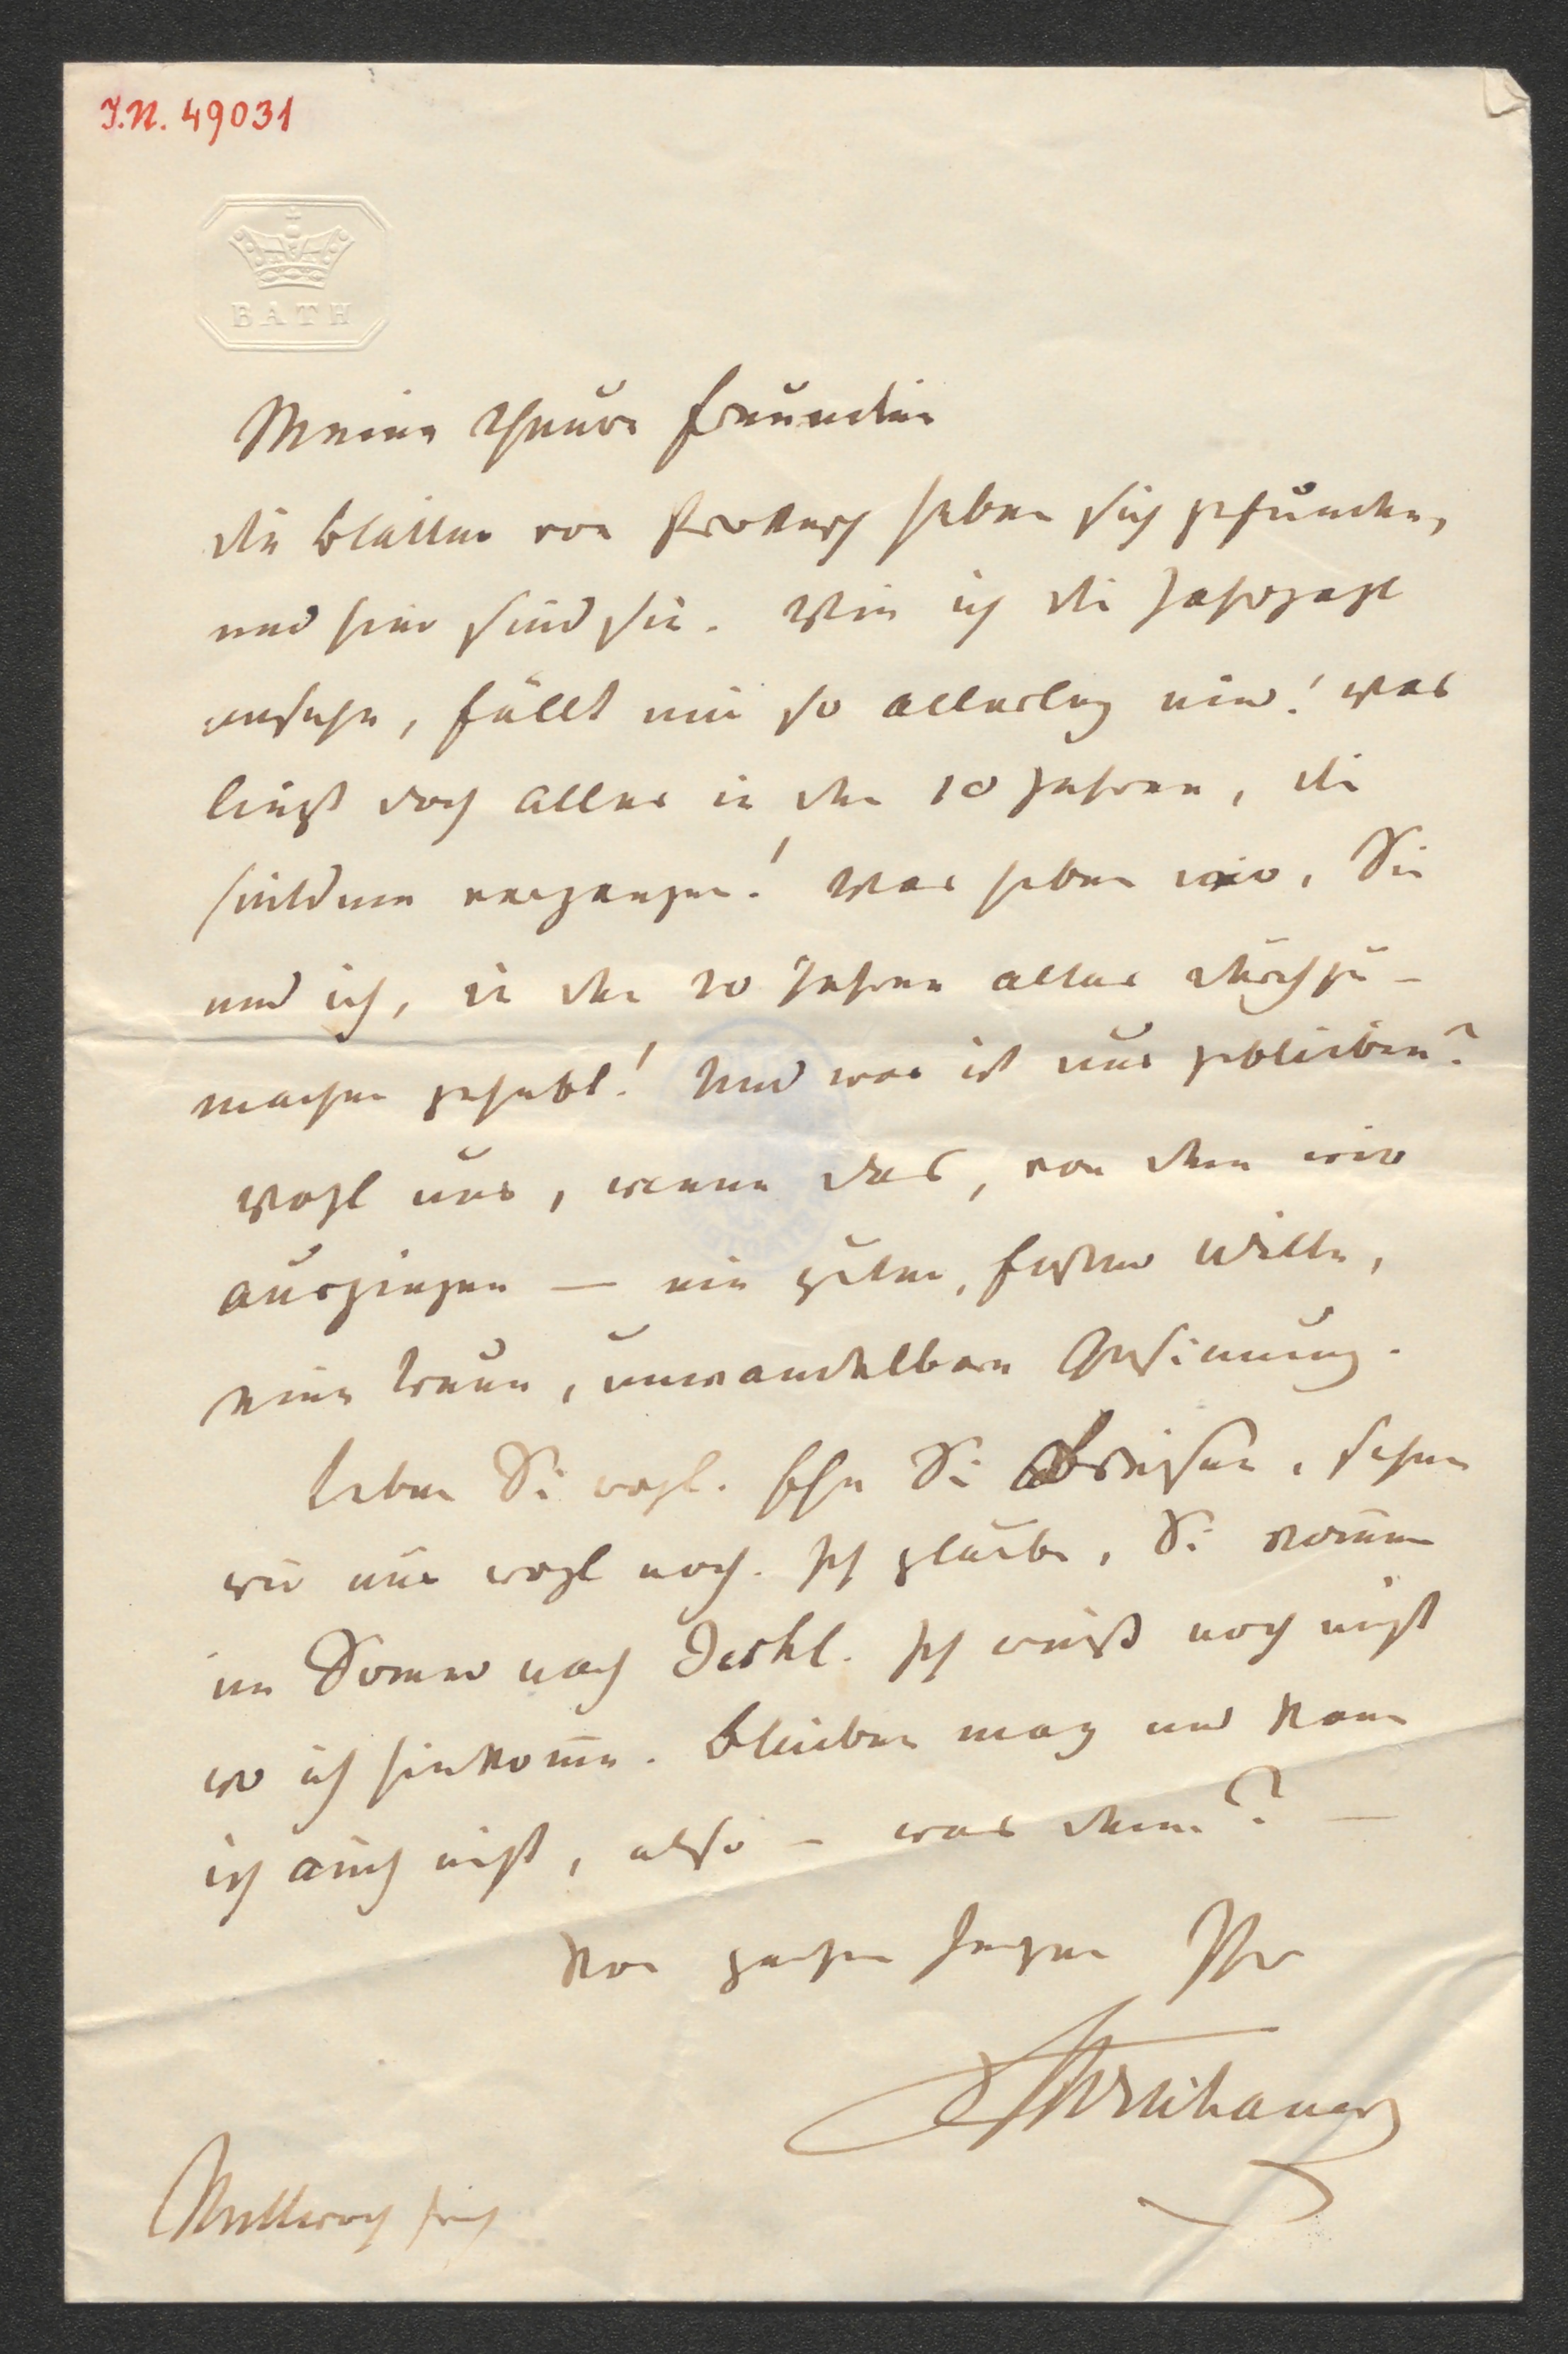 I.N. 49031
BATH
Meine theure Freundin
die Blätter von Prokesch haben sich gefunden,
und hier sind sie. Wie ich die Jahrzahl
ansehe, fällt mir so allerley ein! Was
liegt doch alles in den 10 Jahren, die
seitdem vergangen! Was haben wir, Sie
und ich, in den 10 Jahren alles durchzu-
machen gehabt! Und was ist uns geblieben?
Wohl uns, wenn das, von dem wir
ausgingen — ein guter, fester Wille,
eine treue, unwandelbare Gesinnung.
Leben Sie wohl. Ehe Sie abreisen, sehen
wir uns wohl noch. Ich glaube, Sie kommen
im Sommer nach Ischl. Ich weiß noch nicht
wo ich hinkomme. Bleiben mag und kann
ich auch nicht, also – was denn? —
Von ganzem Herzen Ihr
Mittwoch früh